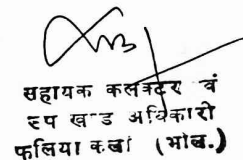 सहायक कलक्टर वं
उप खण्ड अधिकारी
फूलिया कलां (भील.)